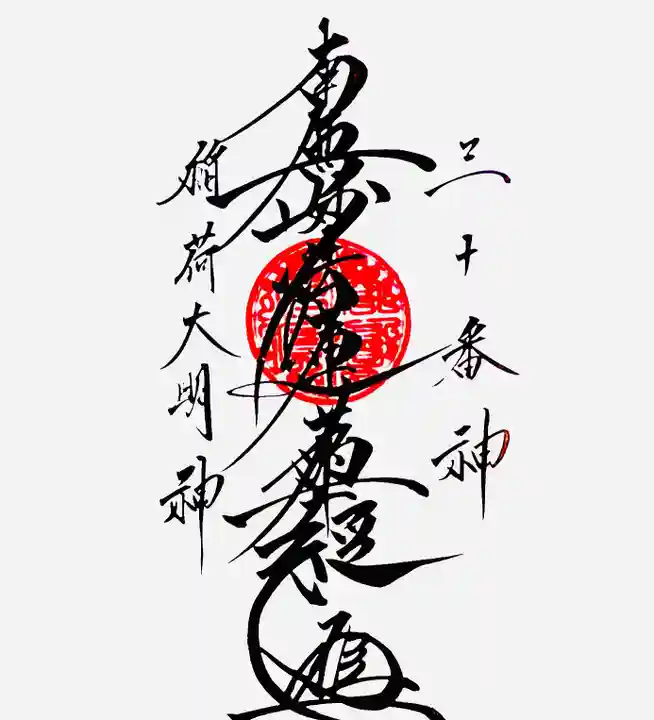 三十番神
南無妙法蓮華経
稲荷大明神